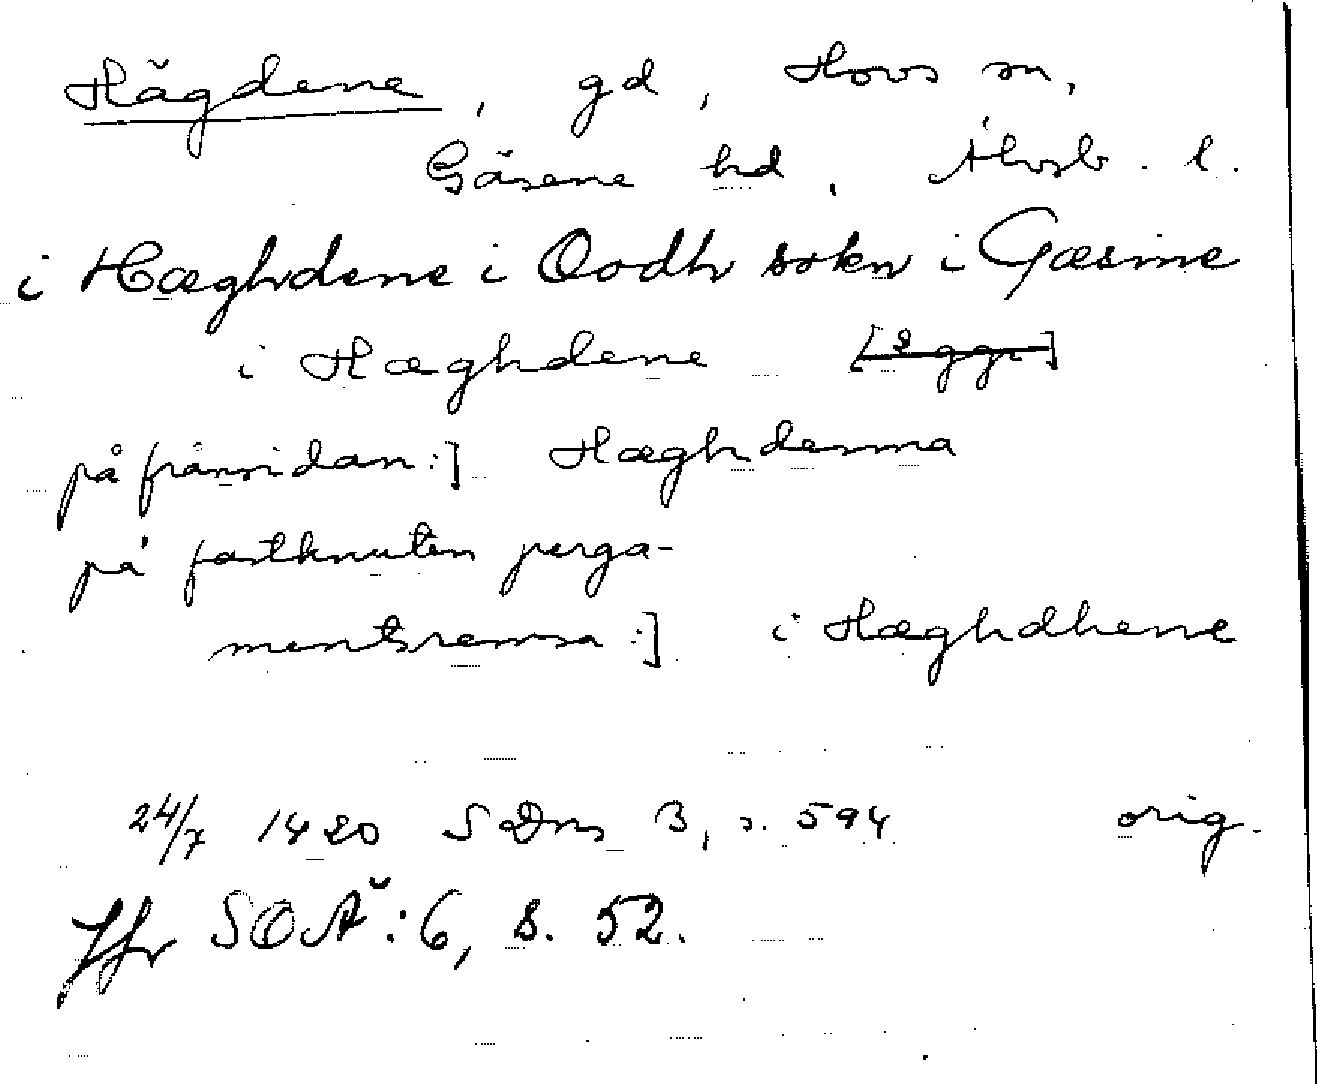 Hägdene, gd, Hovs sn,
Gäsene hd, Älvsb. l.
i Hæghdene i Oodh sokn i Gæsine
i Hæghdene [2 ggr]
på frånsidan:] Hæghdenna
på fastknuten perga-
mentsremsa:] i Hæghdhene
24/7 1420 SDns 3, s. 594 orig.
Jfr SOÄ: 6, s. 52.